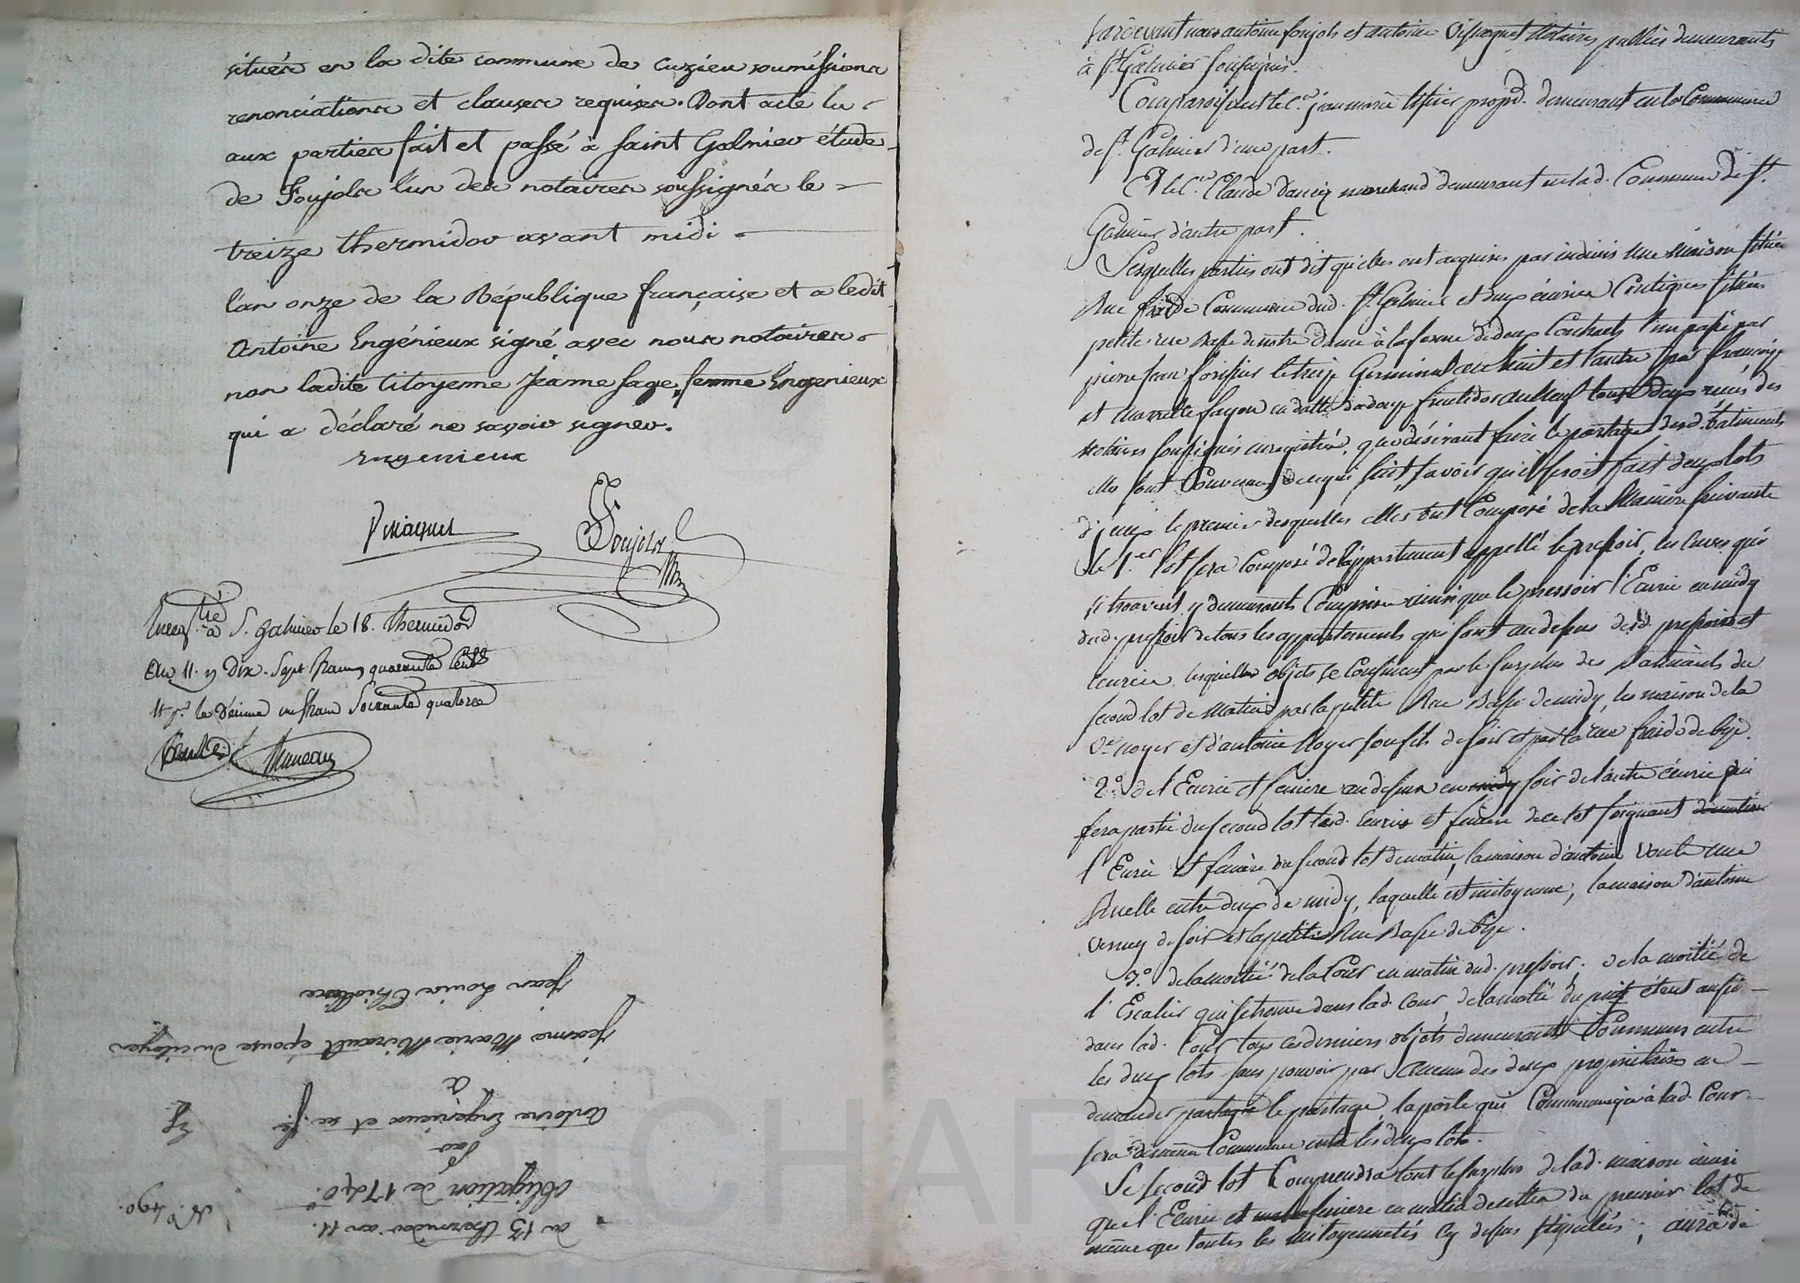 située en la dite commune de cuzieu soumissions
renonciations et clauses requises. Dont acte lu
aux parties fait et passé à saint Galmier étude
de Foujols l'un des notaires soussignés le
treize thermidor avant midi
l'an onze de la République française et a ledit
Antoine Engénieux signé avec nous notaires
non ladite Citoyenne Jeanne sage, femme Engenieux
qui a déclaré ne savoir signer.
Engenieux
Foujols
à S. galmier le 18. thermidor
an 11. Dix-Sept francs quarante Cents
le Décime un franc Soixante quatorze
du 13 thermidor an 11.
obligation de 1740.
N.º 490.
Par
antoine Engenieux et sa f.e
a
jeanne Marie Mirault épouse du citoyen
jean Louis
pardevant nous antoine foujols et antoine notaires publics demeurants
à St Galmier soussignés.
Comparoissent le C.en jean marie propre. demeurant en la Commune
de St. Galmier d'une part.
Et le C.en Claude marchand demeurant en lad. Commune de St.
Galmier d'autre part.
Lesquelles parties ont dit qu'elles ont acquises par indivis une maison située
Rue froide Commune dud. St. Galmier et deux écuries Contigues situées
petite rue Basse à la forme de deux Contracts l'un passé par
le treize Germinal an huit et l'autre par
et en datte du douze fructidor an neuf tous deux reçus des
notaires soussignés que désirant faire le partage desd. bâtiments
elles sont Convenues de ce qui suit, savoir qu'il seroit fait deux lots
d'iceux le premier desquelles elles ont Composé de la Manière suivante
Le 1.er lot sera Composé de l'appartement appellé le pressoir, les Cuves qui
se trouvent y demeurants Comprises ainsi que le pressoir l'Ecurie en midy
dud. pressoir de tous les appartements qui sont au dessus desd. pressoir et
écurie, lesquelles objets se Confinent par le surplus des Batiments du
second lot de matin par la petite Rue Basse de midy, les maison de la
V.e noyer et d'antoine Noyer de soir et par la rue froide de bize.
2.º de l'Ecurie et feniere au dessus en soir de l'autre écurie qui
fera partie du second lot lad. Ecurie et fenière de ce lot joignant
l'Ecurie et fenière du second lot de matin, la maison d'antoine une
Ruelle entre deux de midy, laquelle est mitoyenne, la maison d'antoine
de soir et la petite Rue Basse de bize.
3.º de la moitié de la Cour en matin dud. pressoir; de la moitié de
l'Escalier qui se trouve dans lad. Cour, de la moitié du puit étant aussi
dans lad. Cour tous ces derniers objets demeurants Communs entre
les deux lots sans pouvoir par aucun des deux propriétaires en
demander le partage, la porte qui Communique à lad. Cour
sera de même Commune entre les deux lots.
Le second lot Comprendra tout le surplus de lad. maison ainsi
que l'Ecurie et feniere en matin de celles du premier lot de
même que toutes les mitoyennetés cy dessus stipulées; aura de